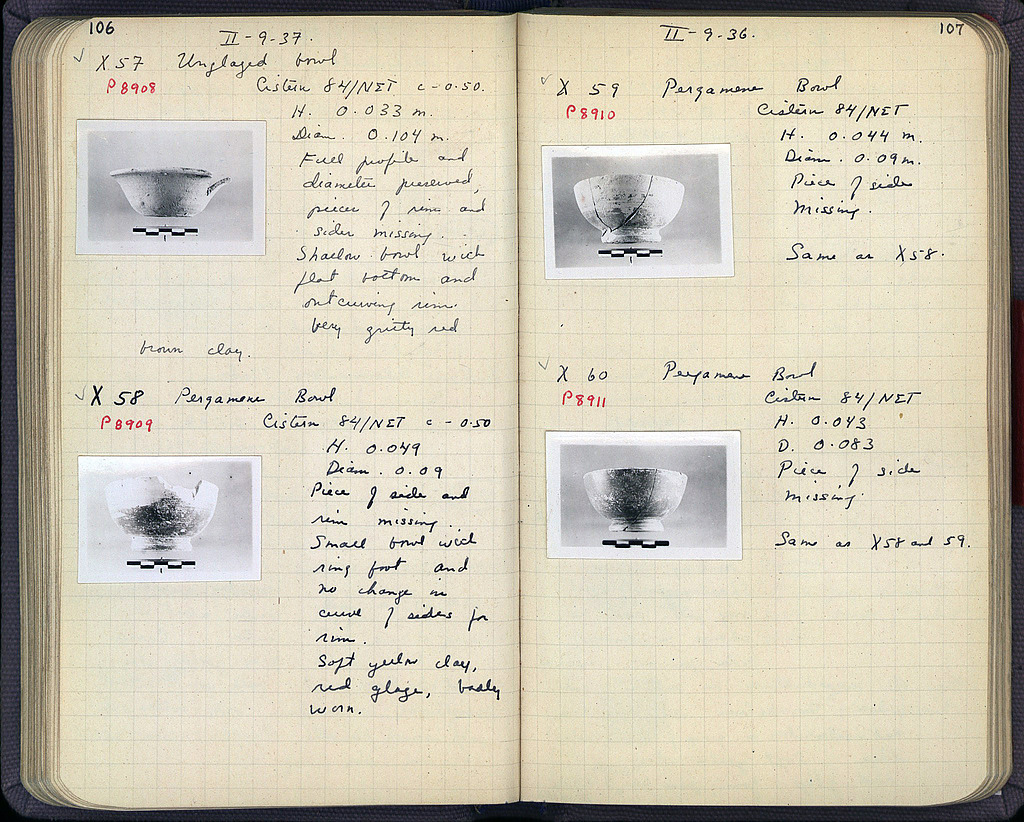 106
II-9-37.
X 57 Unglazed bowl
P 8908
Cistern 84/ΝΣΤ c -0.50.
H. 0.033 m.
Diam. 0.104 m.
Full profile and
diameter preserved,
pieces of rim and
sides missing.
Shallow bowl with
flat bottom and
outcurving rim.
Very gritty red
brown clay.
X 58 Pergamene Bowl
P 8909
Cistern 84/ΝΣΤ c -0.50
H. 0.049
Diam. 0.09
Piece of side and
rim missing.
Small bowl with
ring foot and
no change in
curve of sides for
rim.
Soft yellow clay,
red glaze, badly
worn.
107
II-9-36.
X 59 Pergamene Bowl
P 8910
Cistern 84/ΝΣΤ
H. 0.044 m.
Diam. 0.09 m.
Piece of side
missing.
Same as X58.
X 60 Pergamene Bowl
P 8911
Cistern 84/ΝΣΤ
H. 0.043
D. 0.083
Piece of side
missing.
Same as X58 and 59.